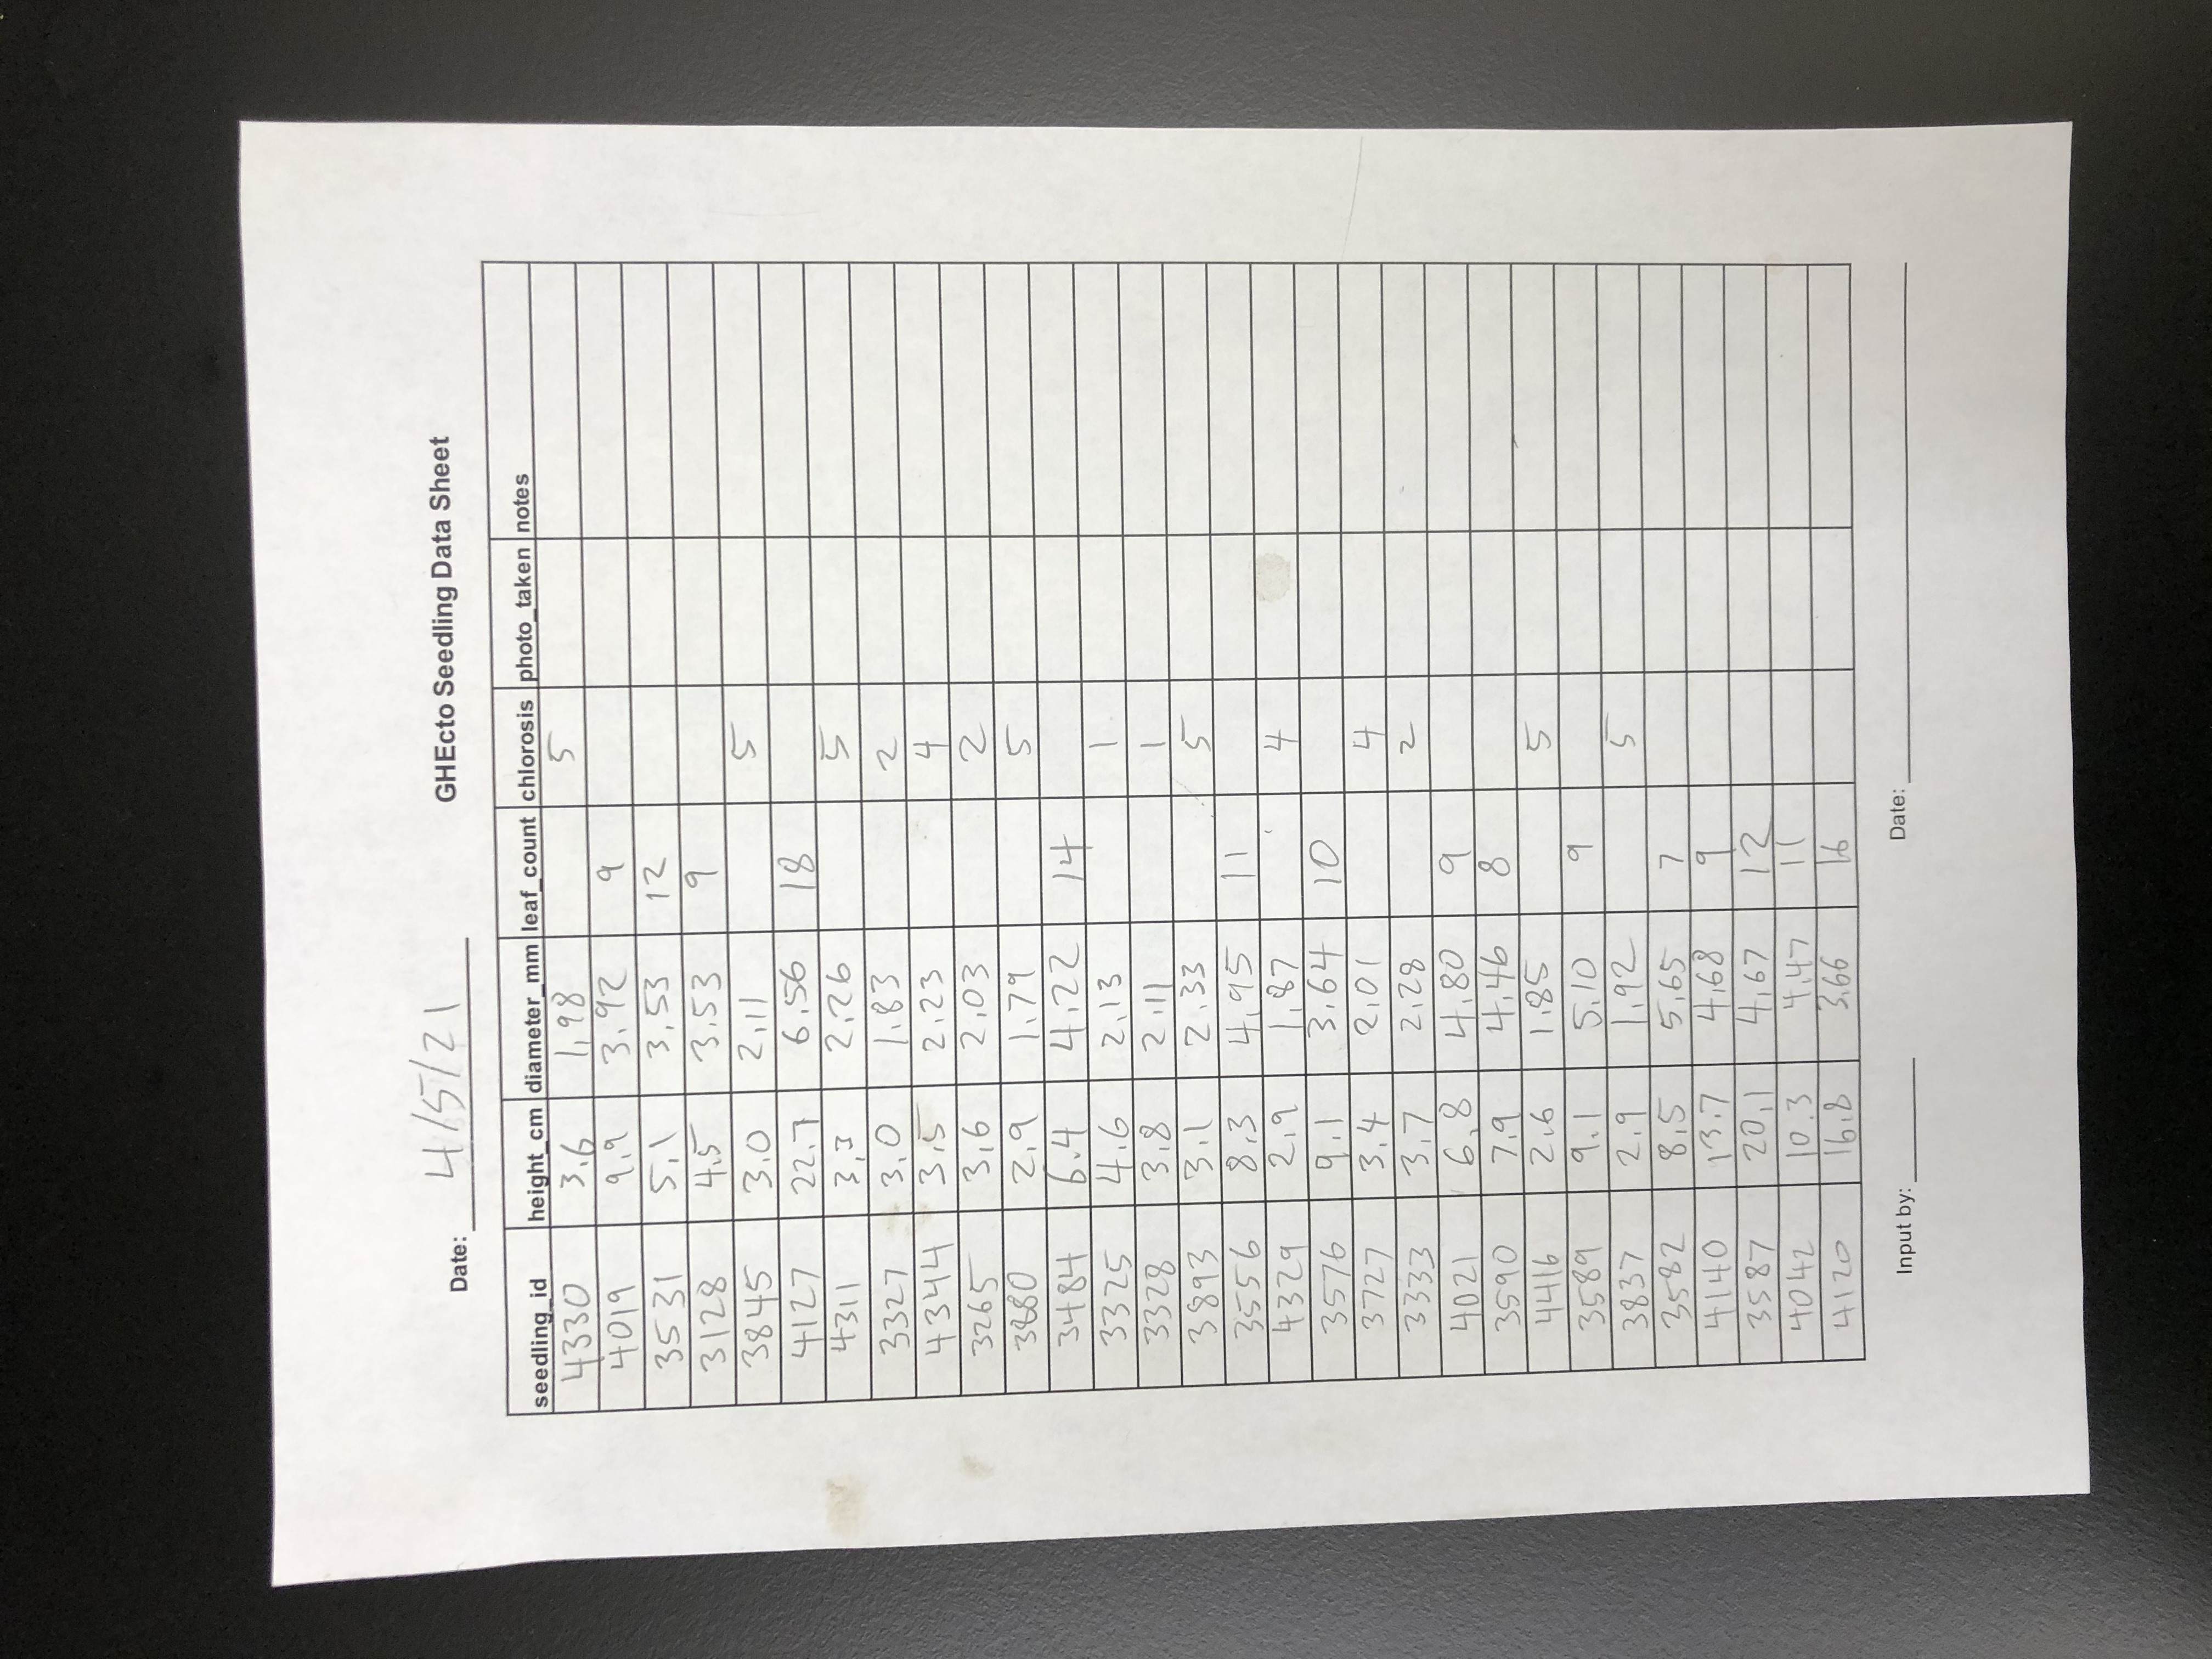 GHEcto Seedling Data Sheet
Date: 4/5/21
seedling_id height_cm diameter_mm leaf_count chlorosis photo_taken notes
4330 3.6 1.98 5
4019 9.9 3.92 9
3531 5.1 3.53 12
3128 4.5 3.53 9
3845 3.0 2.11 5
4127 22.7 6.56 18
4311 3.3 2.26 5
3327 3.0 1.83 2
4344 3.5 2.23 4
3265 3.6 2.03 2
2.9 1.79 5
3484 6.4 4.22 14
3325 4.6 2.13 1
3328 3.8 2.11 1
3893 3.1 2.33 5
3556 8.3 4.95 11
4329 2.9 1.87 4
3576 9.1 3.64 10
3727 3.4 2.01 4
3333 3.7 2.28 2
4021 6.8 4.80 9
3590 7.9 4.46 8
4416 2.6 1.85 5
3589 9.1 5.10 9
3837 2.9 1.92 5
3582 8.5 5.65 7
4140 13.7 4.68 9
3587 20.1 4.67 12
4042 10.3 4.47 11
4120 16.8 3.66 16
Input by: Date: